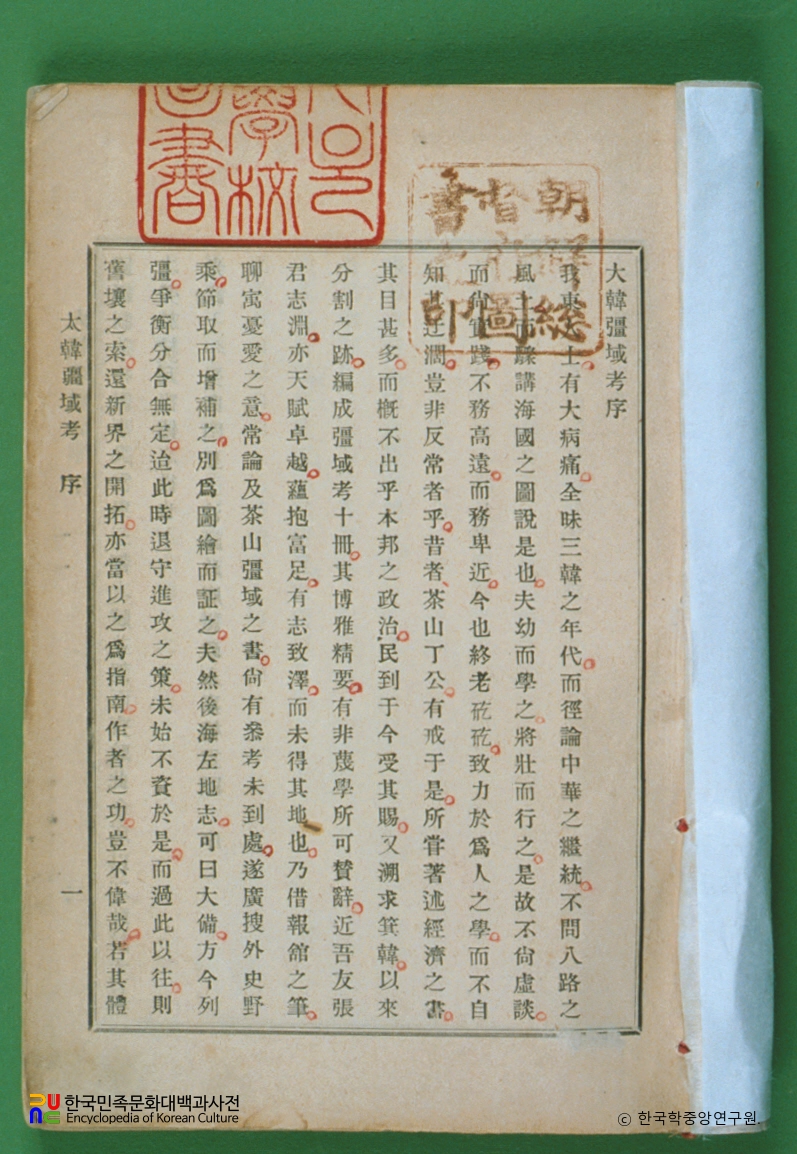 大韓彊域考序
我東之士有大病痛全昧三韓之年代而徑論中華之繼統不問八路之
風土而驟講海國之圖說是也夫幼而學之將壯而行之是故不尙虛談
而尙實踐不務高遠而務卑近今也終老矻矻致力於爲人之學而不自
知其迂濶豈非反常者乎昔者茶山丁公有戒于是所嘗著述經濟之書
其目甚多而槪不出乎本邦之政治民到于今受其賜又溯求箕韓以來
分割之跡編成彊域考十冊其博雅精要有非蔑學所可贊辭近吾友張
君志淵亦天賦卓越蘊抱富足有志致澤而未得其地也乃借報舘之筆
聊寓憂愛之意常論及茶山彊域之書尙有叅考未到處遂廣搜外史野
乘節取而增補之別爲圖繪而証之夫然後海左地志可曰大備方今列
彊爭衡分合無定迨此時退守進攻之策未始不資於是而過此以往則
舊壤之索還新界之開拓亦當以之爲指南作者之功豈不偉哉若其體
大韓疆域考 序 一
朝鮮總
督府圖
書之印
學校
書
한국민족문화대백과사전
Encyclopedia of Korean Culture
© 한국학중앙연구원